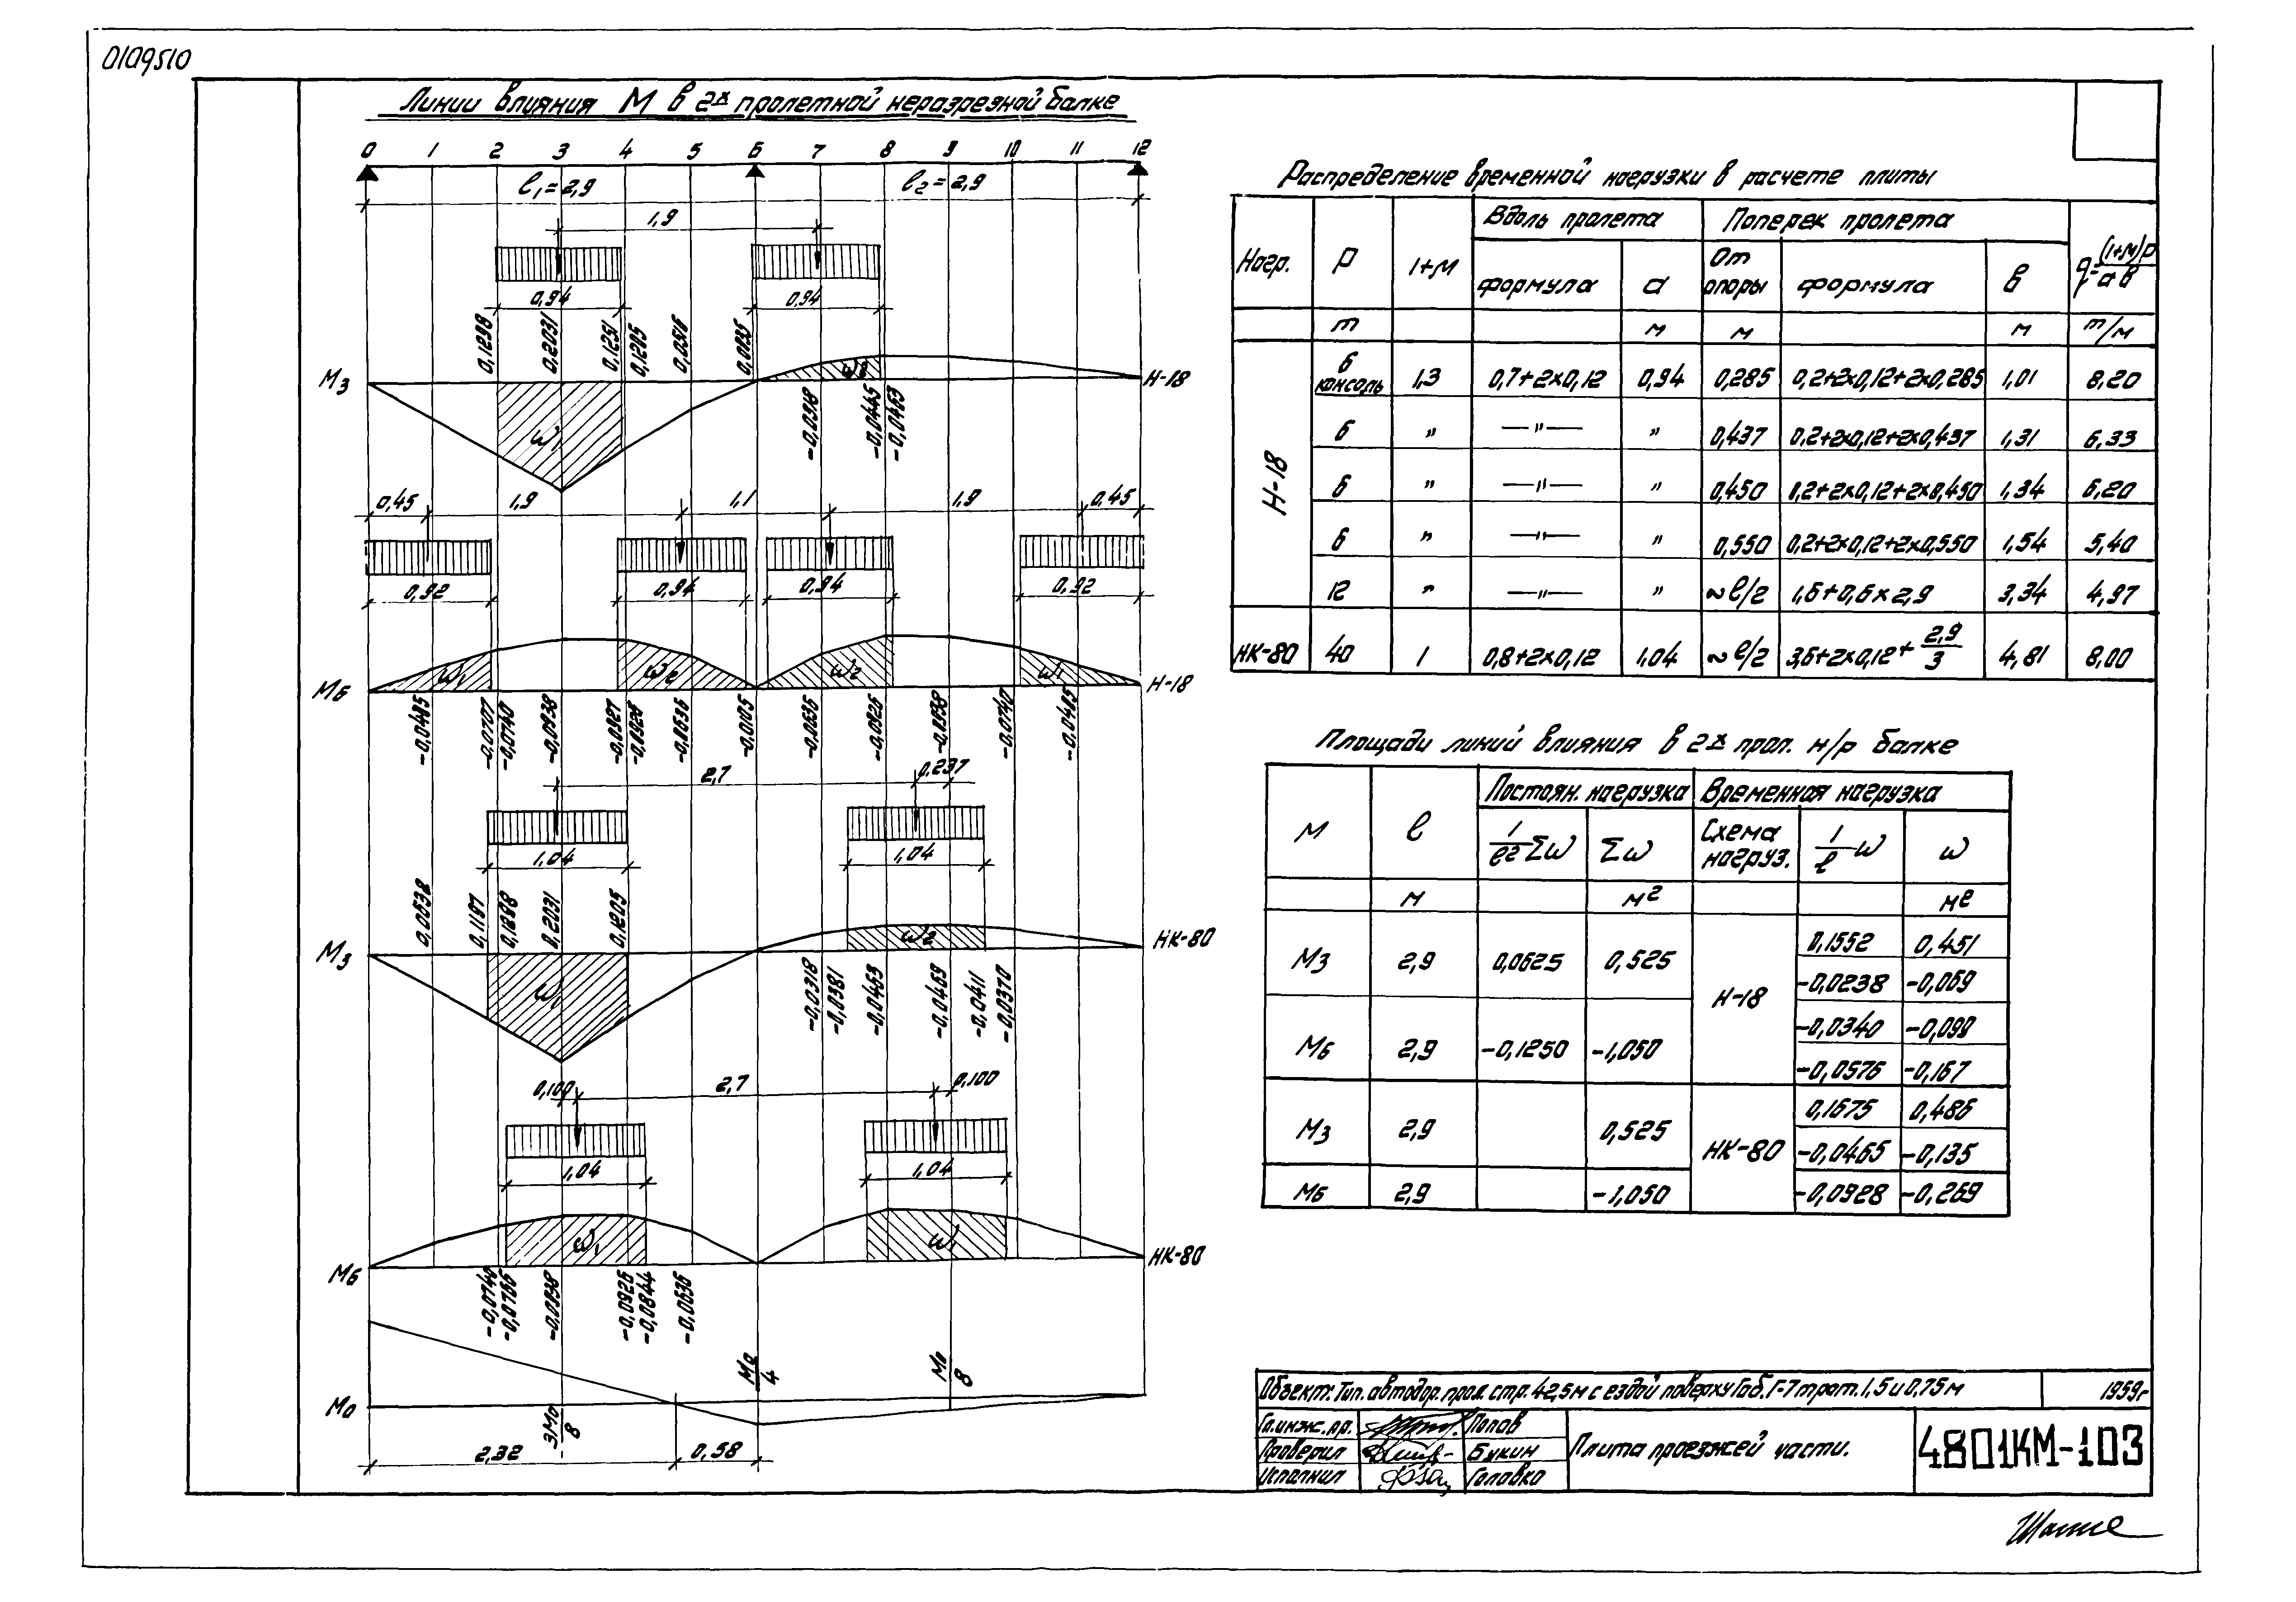 0109510
Линии влияния М в 2х пролетной неразрезной балке
0 1 2 3 4 5 6 7 8 9 10 11 12
l₁=2,9 l₂=2,9
1,9
0,94 0,94
0,1298 0,2031 0,1251 0,1205 0,0516 0,0035
М3 ω₁ ω₂ Н-18
-0,0318 -0,0445 -0,0463
0,45 1,9 1,1 1,9 0,45
0,92 0,94 0,94 0,92
М6 ω₁ ω₂ ω₂ ω₁ Н-18
-0,0485 -0,0707 -0,0740 -0,0938 -0,0927 -0,0926 -0,0636 -0,0105 -0,0636 -0,0926 -0,0938 -0,0740 -0,0485
2,7 0,237
1,04 1,04
0,0638 0,1197 0,1298 0,2031 0,1205
М3 ω₁ ω₂ НК-80
-0,0318 -0,0381 -0,0463 -0,0469 -0,0411 -0,0370
0,100 2,7 0,100
1,04 1,04
М6 ω₁ ω₁ НК-80
-0,0740 -0,0766 -0,0938 -0,0926 -0,0844 -0,0636
М0 3М0/8 М0/4 М0/8
2,32 0,58
Распределение временной нагрузки в расчете плиты
Нагр. Р 1+м Вдоль пролета Поперек пролета q=(1+м)Р/ав
формула а От опоры формула в
т м м м т/м
Н-18
6 консоль 1,3 0,7+2х0,12 0,94 0,285 0,2+2х0,12+2х0,285 1,01 8,20
6 „ —„— „ 0,437 0,2+2х0,12+2х0,437 1,31 6,33
6 „ —„— „ 0,450 0,2+2х0,12+2х0,450 1,34 6,20
6 „ —„— „ 0,550 0,2+2х0,12+2х0,550 1,54 5,40
12 „ —„— „ ~l/2 1,6+0,6х2,9 3,34 4,97
НК-80 40 1 0,8+2х0,12 1,04 ~l/2 3,6+2х0,12+2,9/3 4,81 8,00
Площади линий влияния в 2х прол. н/р балке
М l Постоян. нагрузка Временная нагрузка
1/l² Σω Σω Схема нагруз. 1/l ω ω
м м² м²
М3 2,9 0,0625 0,525 Н-18 0,1552 0,451
-0,0238 -0,069
М6 2,9 -0,1250 -1,050 -0,0340 -0,099
-0,0576 -0,167
М3 2,9 0,525 НК-80 0,1675 0,486
-0,0465 -0,135
М6 2,9 -1,050 -0,0928 -0,269
Объект: Тип. автодор. прол. стр. 42,5м с ездой поверху Габ. Г-7 трот. 1,5 и 0,75м 1959г
Гл. инж. пр. Попов
Проверил Букин
Исполнил Головко
Плита проезжей части.
4801КМ-103